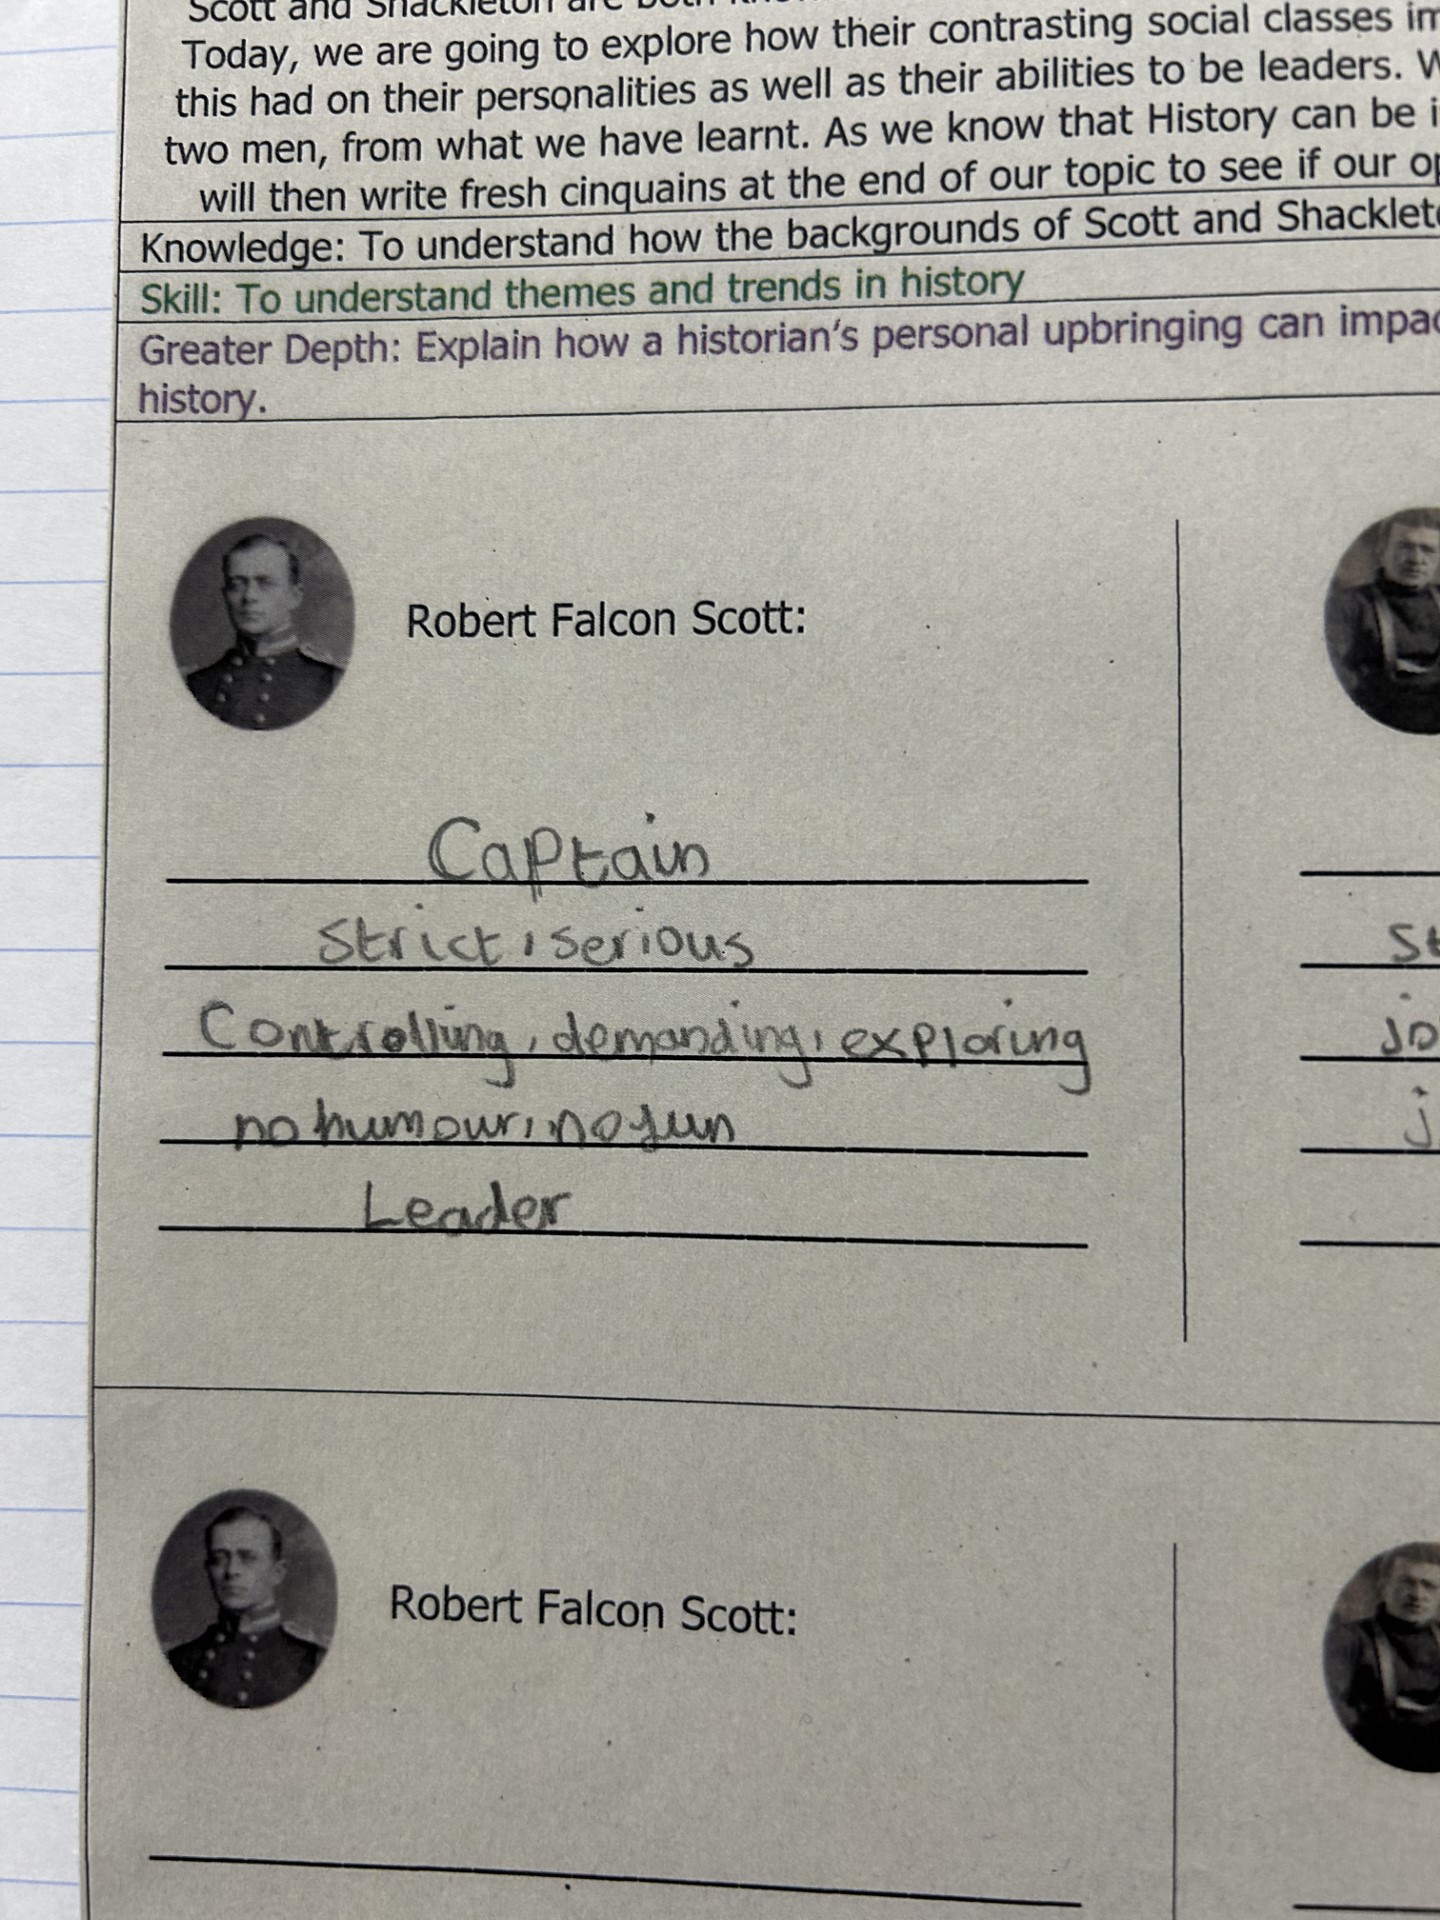 Scott and Shackleton are both
Today, we are going to explore how their contrasting social classes im
this had on their personalities as well as their abilities to be leaders. W
two men, from what we have learnt. As we know that History can be i
will then write fresh cinquains at the end of our topic to see if our op
Knowledge: To understand how the backgrounds of Scott and Shackleto
Skill: To understand themes and trends in history
Greater Depth: Explain how a historian's personal upbringing can impac
history.
Robert Falcon Scott:
Captain
Strict, serious
St
Controlling, demanding, exploring
jo
no humour, no fun
j
Leader
Robert Falcon Scott: